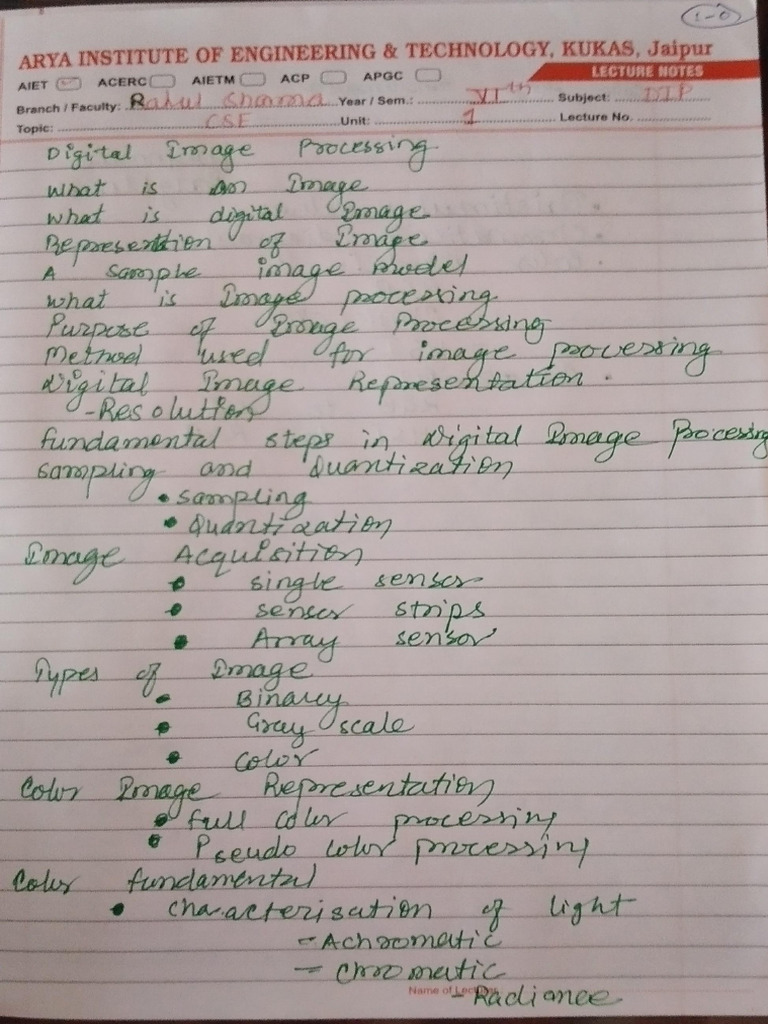 1-0
ARYA INSTITUTE OF ENGINEERING & TECHNOLOGY, KUKAS, Jaipur
LECTURE NOTES
AIET ACERC AIETM ACP APGC
Branch / Faculty: Rahul Sharma Year / Sem.: VIth Subject: DIP
Topic: CSE Unit: 1 Lecture No.
Digital Image Processing
What is an Image
what is digital Image
Representtion of Image
A sample image model
what is Image processing
Purpose of Image Processing
Method used for image processing
Digital Image Representation.
-Resolution
fundamental steps in Digital Image Processing
sampling and Quantization
• sampling
• Quantization
Image Acquisition
• single sensor
• senser strips
• Array sensor
Types of Image
• Binary
• Gray scale
• color
Color Image Representation
• full color processing
• Pseudo color processing
Color fundamental
• characterisation of light
- Achromatic
- chromatic
- Radiance
Name of Lecturer